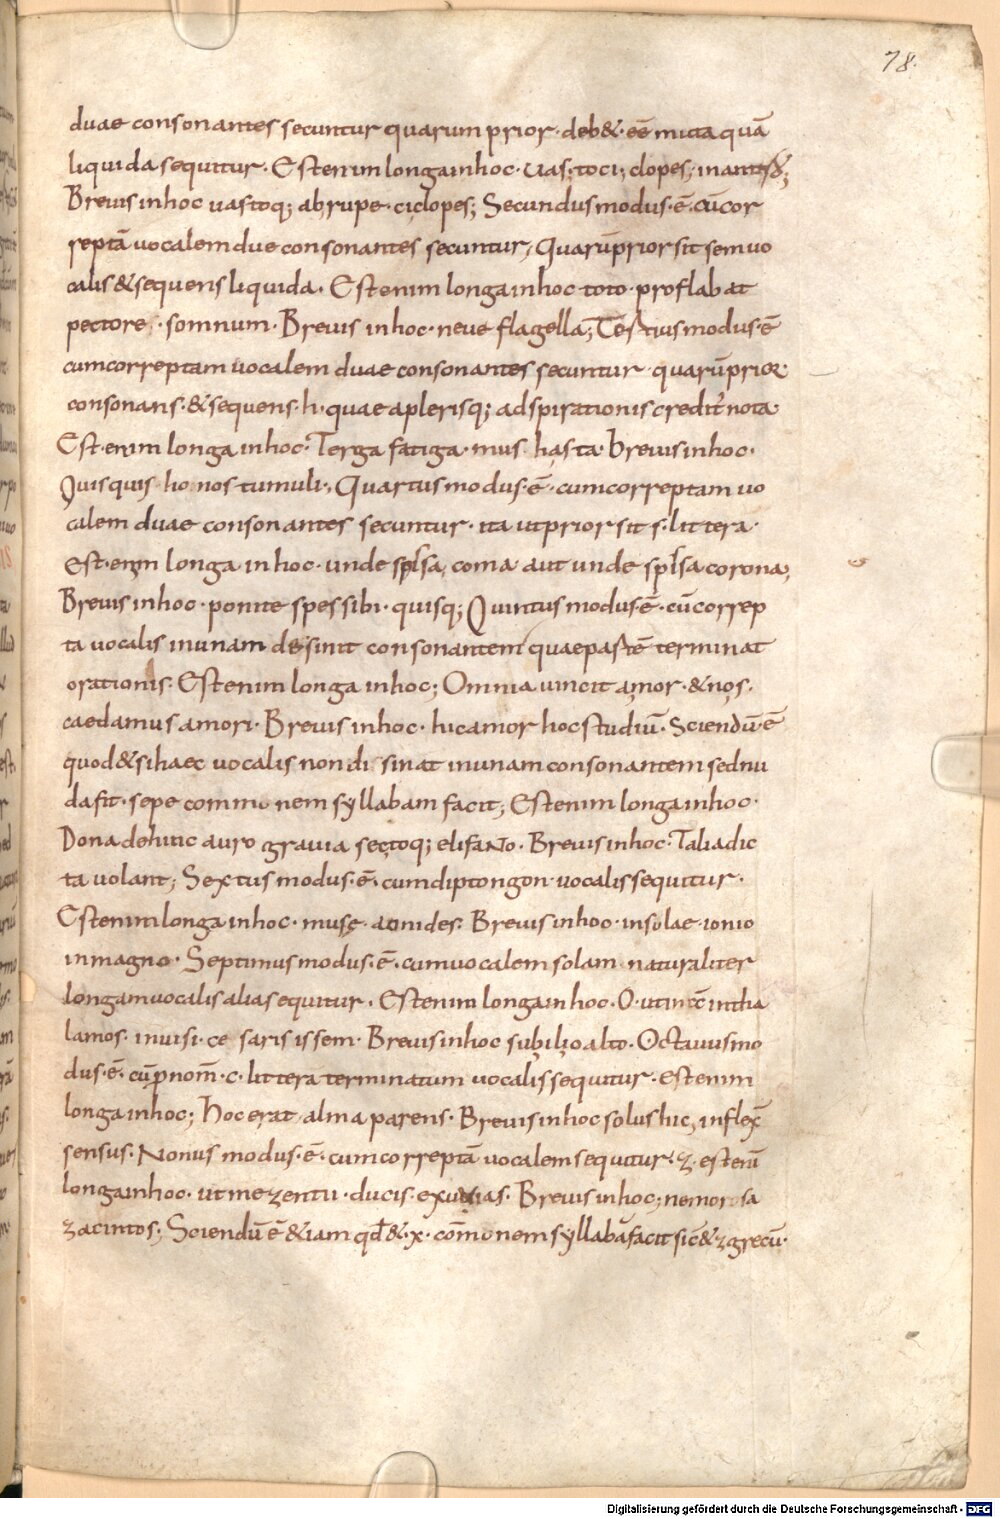 78.
duae consonantes secuntur quarum prior · deb&· eē muta quā
liquida sequitur · Est enim longa inhoc · uas; toci; clopes;
Breuis inhoc uastoq; abrupe · ciclopes; Secundus modus · ē · cū cor
reptā uocalem due consonantes secuntur, Quarū prior sit semuo
calis & sequens liquida · Est enim longa inhoc toto · proflabat
pectore · somnum · Breuis inhoc · neue flagella; Tertius modus · ē
cum correptam uocalem duae consonantes secuntur · quarū prior
consonans · & sequens · h · quae a plerisq; adspirationis credit̄ nota ·
Est · enim longa inhoc · Terga fatiga · mus · hasta · Breuis inhoc ·
Quisquis · honos tumuli ·, Quartus modus · ē · cum correptam uo
calem duae consonantes secuntur · ita ut prior sit · s · littera ·
est · enim longa inhoc · unde coma aut unde corona;
Breuis inhoc · ponite spes sibi · quisq; Quintus modus · ē · cū correp
ta uocalis inunam desinit consonantem quae partē terminat
orationis · Est enim longa inhoc; Omnia uincit amor · & nos ·
caedamus amori · Breuis inhoc · hic amor hoc studiū · Sciendū ē
quod & si haec uocalis non di sinat inunam consonantem sed nu
da fit · sepe communem syllabam facit; Est enim longa inhoc ·
Dona dehinc auro grauia sectoq; elifaNo · Breuis inhoc · Talia dic
ta uolant; Sextus modus · ē · cum diptongon uocalis sequitur ·
Est enim longa inhoc · musę aonides · Breuis inhoc · insolae · ionio
in magno · Septimus modus · ē · cum uocalem solam naturaliter
longam uocalis alia sequitur · Est enim longa inhoc · O · utinā intha
lamos · inuisi · ce saris issem · Breuis inhoc sub ilio alto · Octauus mo
dus · ē · cū pnom̄ · c · littera terminatum uocalis sequitur · est enim
longa inhoc; hoc erat alma parens · Breuis inhoc solus hic, inflex̄
sensus · Nonus modus · ē · cum correptā uocalem sequitur · z · est enī
longa inhoc · ut mezenti · ducis · exuuias · Breuis inhoc; nemorosa
zacintos; Sciendū ē & iam qđ & · x · cōmonem syllabā facit sic̄ & z grecū ·
Digitalisierung gefördert durch die Deutsche Forschungsgemeinschaft - DFG